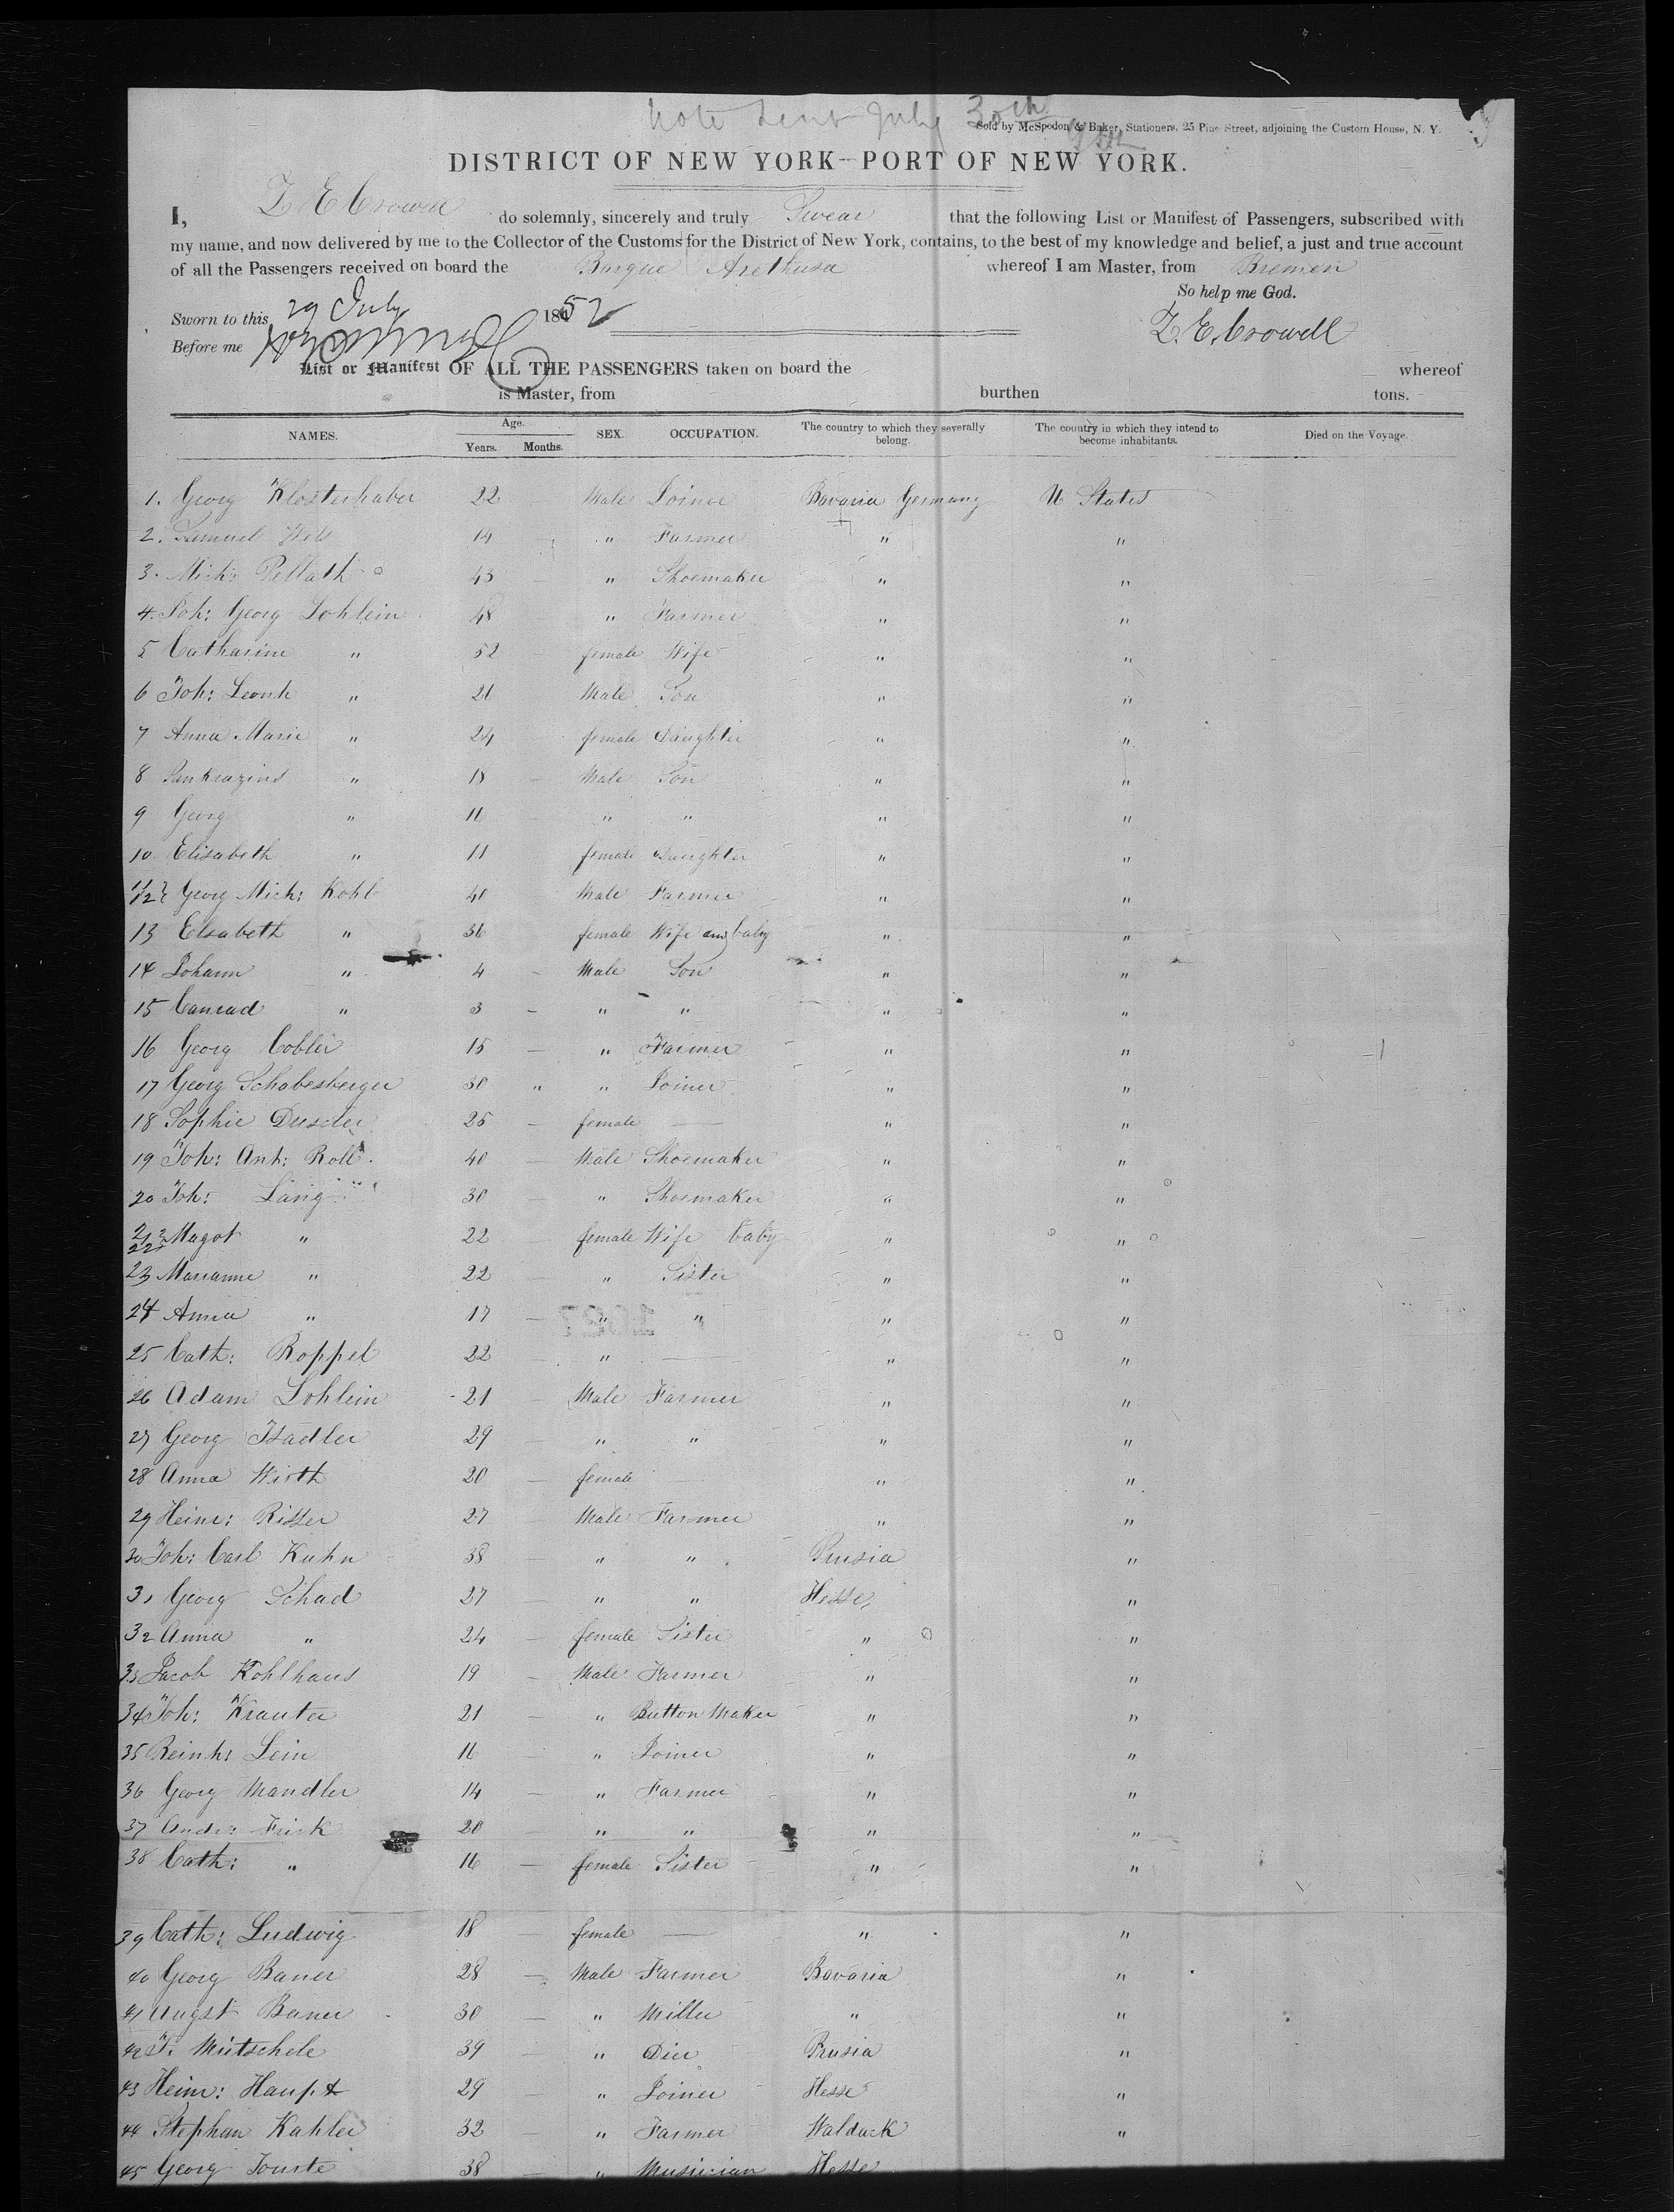 Note Sent July 30th
Sold by McSpedon & Baker, Stationers, 25 Pine Street, adjoining the Custom House, N. Y.
DISTRICT OF NEW YORK—PORT OF NEW YORK.
I, Z E Crowell do solemnly, sincerely and truly Swear that the following List or Manifest of Passengers, subscribed with
my name, and now delivered by me to the Collector of the Customs for the District of New York, contains, to the best of my knowledge and belief, a just and true account
of all the Passengers received on board the Barque Arethusa whereof I am Master, from Bremen
So help me God.
Sworn to this 29 July 1852
Z. E. Crowell
Before me
List or Manifest OF ALL THE PASSENGERS taken on board the whereof
is Master, from burthen tons.
NAMES. Age. Years. Months. SEX. OCCUPATION. The country to which they severally belong. The country in which they intend to become inhabitants. Died on the Voyage.
1. Georg Klosterhaber 22 Male Joiner Bavaria Germany U States
2. Samuel 14 " Farmer " "
3. Mich: Pellath 45 — " Shoemaker " "
4. Joh: Georg Lohlein 48 — " Farmer " "
5 Catharine " 52 — female Wife " "
6 Joh: Leonh " 21 Male Son " "
7 Anna Marie " 24 — female Daughter " "
8 Pankrazius " 18 — Male Son " "
9 Georg " 16 — " " " "
10 Elisabeth " 11 female Daughter " "
11 12 } Georg Mich: Kohl 40 Male Farmer " "
13 Elsabeth " 36 female Wife and baby " "
14 Johann " 4 — Male Son " "
15 Conrad " 3 — " " " "
16 Georg Cobler 15 — " Farmer " "
17 Georg Schabesberger 30 " " Joiner " "
18 Sophie 25 — female — " "
19 Joh: Ant: Roll 40 — Male Shoemaker " "
20 Joh: Lang 30 — " Shoemaker " "
21 22 } Magot " 22 female Wife baby " "
23 Marianne " 22 — " Sister " "
24 Anna " 17 — " " " "
25 Cath: Roppel 22 — " — " "
26 Adam Lohlein 21 — Male Farmer " "
27 Georg Stadler 29 — " " " "
28 Anna Wirth 20 — female — " "
29 Heinr: Ritter 27 — Male Farmer " "
30 Joh: Carl Kuhn 38 — " " Prusia "
31 Georg Schad 27 — " " Hesse "
32 Anna " 24 — female Sister " "
33 Jacob Kohlhaus 19 — Male Farmer " "
34 Joh: Krauter 21 — " Button Maker " "
35 Reinh: Lein 16 — " Joiner " "
36 Georg Mandler 14 — " Farmer " "
37 Andr: Frick 20 — " " " "
38 Cath: " 16 — female Sister " "
39 Cath: Ludwig 18 — female — " "
40 Georg Bauer 28 — Male Farmer Bavaria "
41 Augst Bauer 30 — " Miller " "
42 J. Mutschele 39 — " Prusia "
43 Heinr: Haupt 29 — " Joiner Hesse "
44 Stephan Kahler 32 — " Farmer Waldeck "
45 Georg 38 — " Musician Hesse